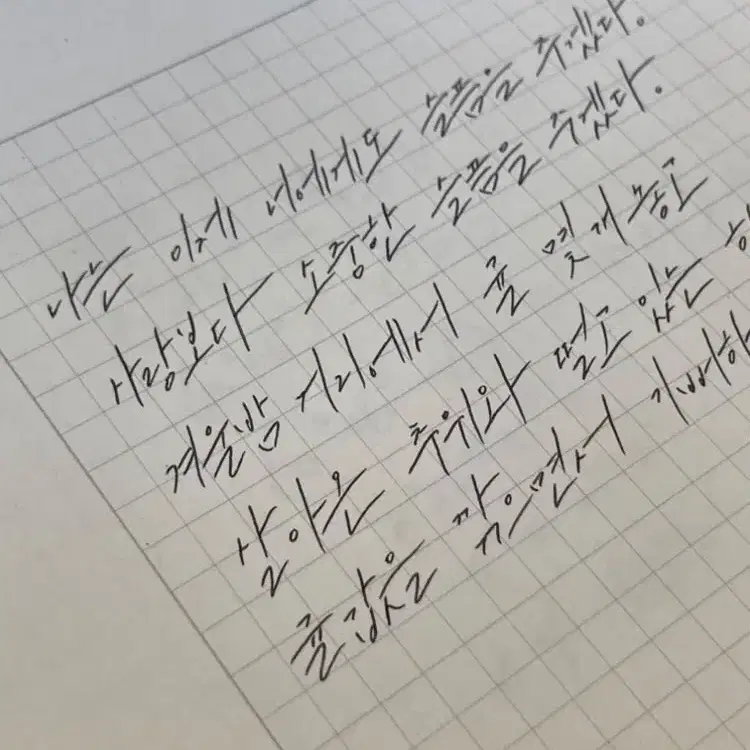 나는 이제 너에게도 슬픔을 주겠다.
사랑보다 소중한 슬픔을 주겠다.
겨울밤 거리에서 귤 몇 개 놓고
살아온 추위와 떨고 있는
귤값을 깎으면서 기뻐하